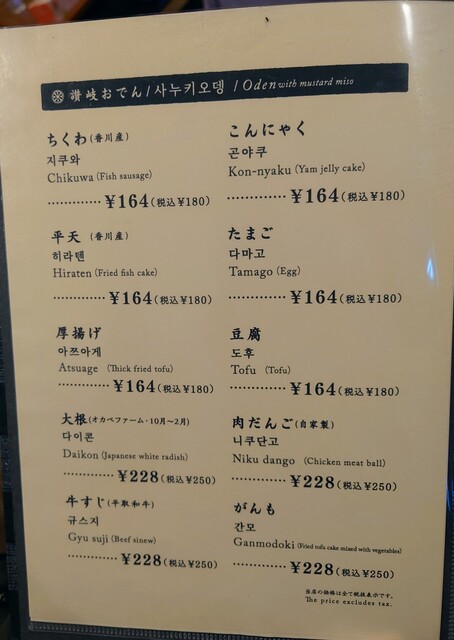 讃岐おでん/사누키오뎅 / Oden with mustard miso
ちくわ(香川産)
지쿠와
Chikuwa (Fish sausage)
············· ¥164(税込¥180)
こんにゃく
곤야쿠
Kon-nyaku (Yam jelly cake)
············· ¥164(税込¥180)
平天 (香川産)
히라텐
Hiraten (Fried fish cake)
············· ¥164(税込¥180)
たまご
다마고
Tamago (Egg)
············· ¥164(税込¥180)
厚揚げ
아쯔아게
Atsuage (Thick fried tofu)
············· ¥164(税込¥180)
豆腐
도후
Tofu (Tofu)
············· ¥164(税込¥180)
大根(オカベファーム・10月〜2月)
다이콘
Daikon (Japanese white radish)
············· ¥228(税込¥250)
肉だんご(自家製)
니쿠단고
Niku dango (Chicken meat ball)
············· ¥228(税込¥250)
牛すじ(平取和牛)
규스지
Gyu suji (Beef sinew)
············· ¥228(税込¥250)
がんも
간모
Ganmodoki (Fried tofu cake mixed with vegetables)
············· ¥228(税込¥250)
当店の価格は全て税抜表示です。
The price excludes tax.